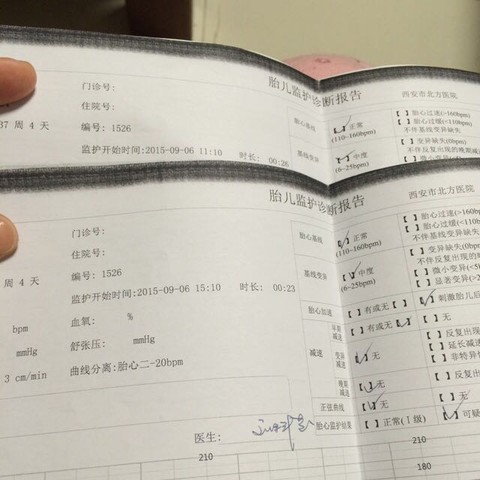 门诊号: 胎儿监护诊断报告 西安市北方医院
住院号: 胎心基线 【 】正常 (110~160bpm) 【 】胎心过速(>160bpm)
【 】胎心过缓(<110bpm)
不伴基线变异缺失
37 周 4 天 编号: 1526
监护开始时间:2015-09-06 11:10 时长: 00:26 基线变异 【 】中度 (6~25bpm) 【 】变异缺失(0bpm)
不伴反复出现的晚期减
【 】微小变异
胎儿监护诊断报告 西安市北方医院
门诊号: 胎心基线 【 】正常 (110~160bpm) 【 】胎心过速(>160
【 】胎心过缓(<110b
不伴基线变异缺失
住院号:
周 4 天 编号: 1526 基线变异 【 】中度 (6~25bpm) 【 】变异缺失(0bpm)
不伴反复出现的
【 】微小变异(<5
【 】显著变异(>2
监护开始时间:2015-09-06 15:10 时长: 00:23
bpm 血氧: % 胎心加速 【 】有或无 【 】刺激胎儿后
mmHg 舒张压: mmHg 减速 早期减速 【 】有或无 【 】无
变异减速 【 】无 【 】反复出现
【 】延长减速
【 】非特异
3 cm/min 曲线分离:胎心二-20bpm 晚期减速 【 】无 【 】反复出
正弦曲线 【 】无 【 】无
医生: 胎心监护结果 【 】正常(Ⅰ级) 【 】可疑
210 210
180